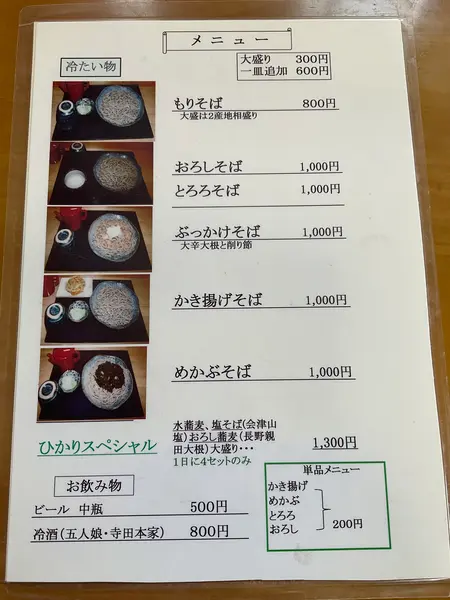 メニュー
冷たい物
大盛り 300円
一皿追加 600円
もりそば 800円
大盛は2産地相盛り
おろしそば 1,000円
とろろそば 1,000円
ぶっかけそば 1,000円
大辛大根と削り節
かき揚げそば 1,000円
めかぶそば 1,000円
ひかりスペシャル
水蕎麦、塩そば(会津山
塩)おろし蕎麦(長野親
田大根)大盛り・・・ 1,300円
1日に4セットのみ
お飲み物
ビール 中瓶 500円
冷酒(五人娘・寺田本家) 800円
単品メニュー
かき揚げ
めかぶ
とろろ
おろし
200円